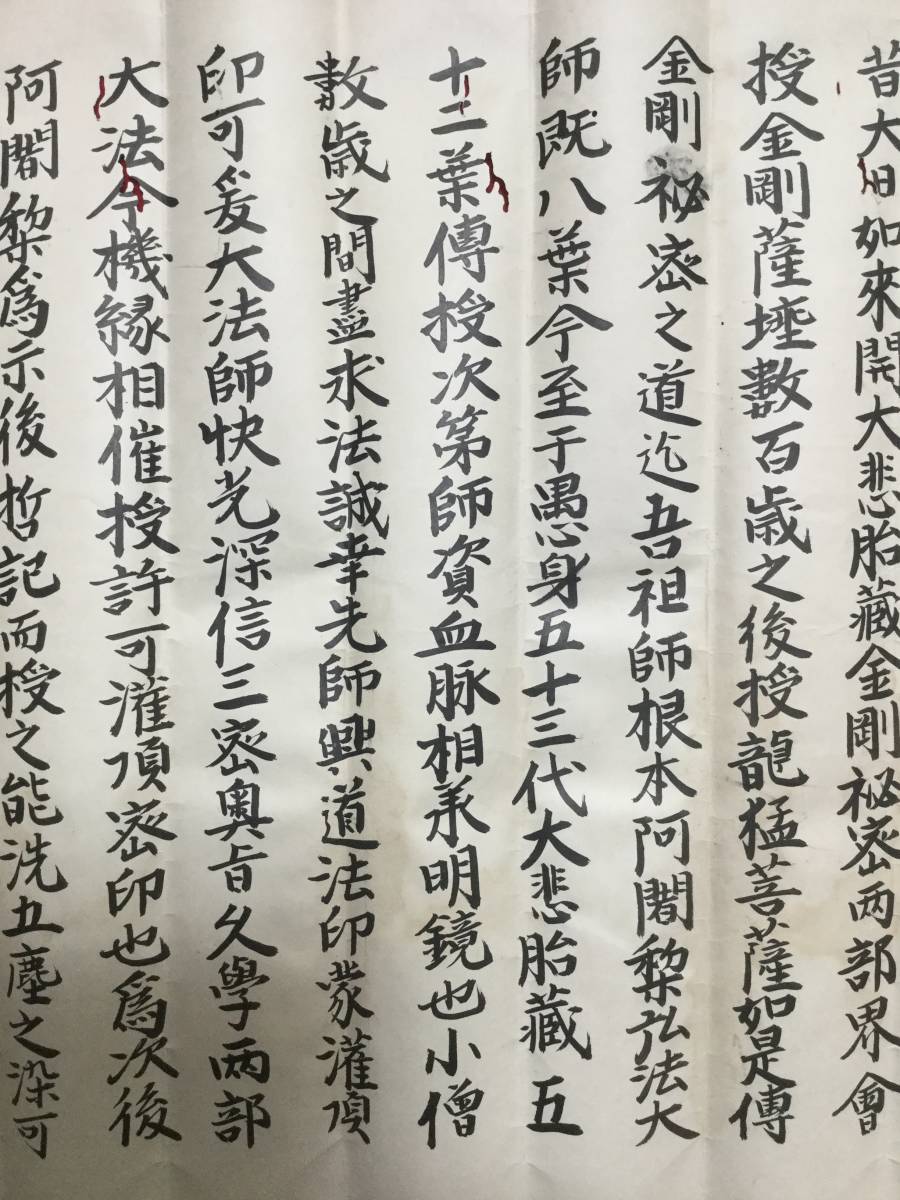 昔大日如來開大悲胎藏金剛祕密兩部界會
授金剛薩埵數百歲之後授龍猛菩薩如是傳
金剛祕密之道迄吾祖師根本阿闍梨弘法大
師既八葉今至于愚身五十三代大悲胎藏五
十二葉傳授次第師資血脉相承明鏡也小僧
數歲之間盡求法誠幸先師興道法印蒙灌頂
印可爰大法師快光深信三密奧旨久學兩部
大法今機緣相催授許可灌頂密印也爲次後
阿闍梨爲示後哲記而授之能洗五塵之染可